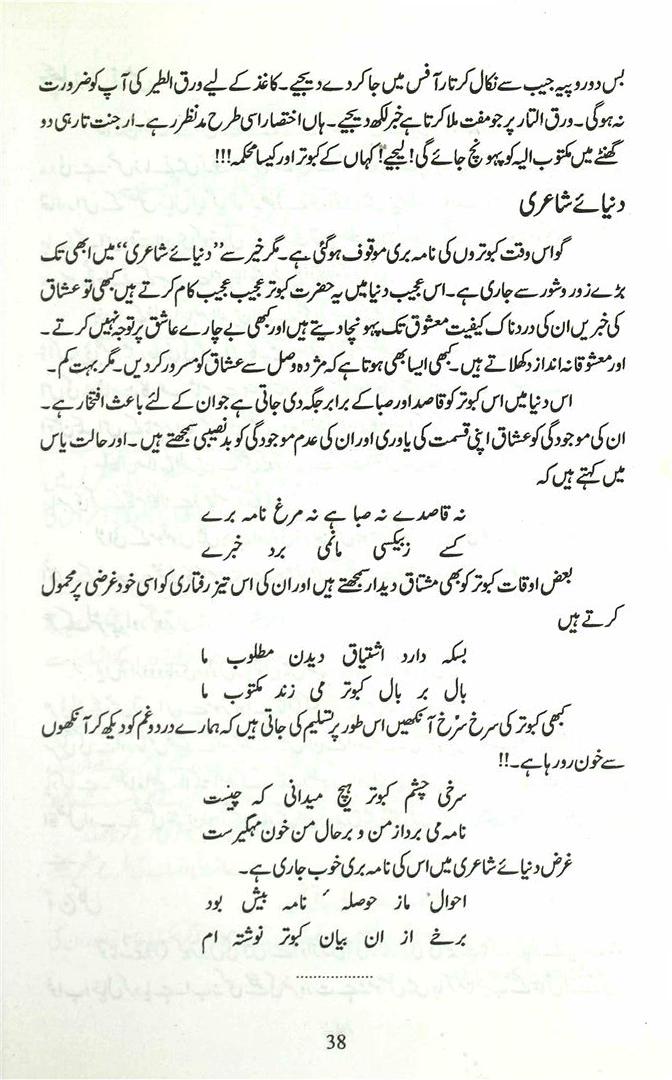 بس دو روپیہ جیب سے نکال کر تار آفس میں جا کر دے دیجیے۔ کاغذ کے لیے ورق الطیر کی آپ کو ضرورت
نہ ہوگی۔ ورق التار پر جو مفت ملا کرتا ہے خبر لکھ دیجیے۔ ہاں اختصار اسی طرح مدنظر رہے۔ ارجنٹ تار ہی دو
گھنٹے میں مکتوب الیہ کو پہونچ جائے گی! لیجیے! کہاں کے کبوتر اور کیسا محکمہ!!!
دنیائے شاعری
گو اس وقت کبوتروں کی نامہ بری موقوف ہوگئی ہے۔ مگر خیر سے ”دنیائے شاعری“ میں ابھی تک
بڑے زور و شور سے جاری ہے۔ اس عجیب دنیا میں یہ حضرت کبوتر عجیب عجیب کام کرتے ہیں کبھی تو عشاق
کی خبریں ان کی دردناک کیفیت معشوق تک پہونچا دیتے ہیں اور کبھی بے چارے عاشق پر توجہ نہیں کرتے۔
اور معشوقانہ انداز دکھلاتے ہیں۔ کبھی ایسا بھی ہوتا ہے کہ مژدہ وصل سے عشاق کو مسرور کردیں۔ مگر بہت کم۔
اس دنیا میں اس کبوتر کو قاصد اور صبا کے برابر جگہ دی جاتی ہے جو ان کے لئے باعث افتخار ہے۔
ان کی موجودگی کو عشاق اپنی قسمت کی یاوری اور ان کی عدم موجودگی کو بدنصیبی سمجھتے ہیں۔ اور حالت یاس
میں کہتے ہیں کہ
نہ قاصدے نہ صبا ہے نہ مرغ نامہ برے
کسے زبیکسی مانمی برد خبرے
بعض اوقات کبوتر کو بھی مشتاق دیدار سمجھتے ہیں اور ان کی اس تیز رفتاری کو اسی خودغرضی پر محمول
کرتے ہیں
بسکہ دارد اشتیاق دیدن مطلوب ما
بال بر بال کبوتر می زند مکتوب ما
کبھی کبوتر کی سرخ سرخ آنکھیں اس طور پر تسلیم کی جاتی ہیں کہ ہمارے درد و غم کو دیکھ کر آنکھوں
سے خون رو رہا ہے۔!!
سرخی چشم کبوتر ہیچ میدانی کہ چیست
نامہ می برداز من و برحال من خون میگیرست
غرض دنیائے شاعری میں اس کی نامہ بری خوب جاری ہے۔
احوال ماز حوصلہ ٔ نامہ بیش بود
برخے از ان بیان کبوتر نوشتہ ام
38